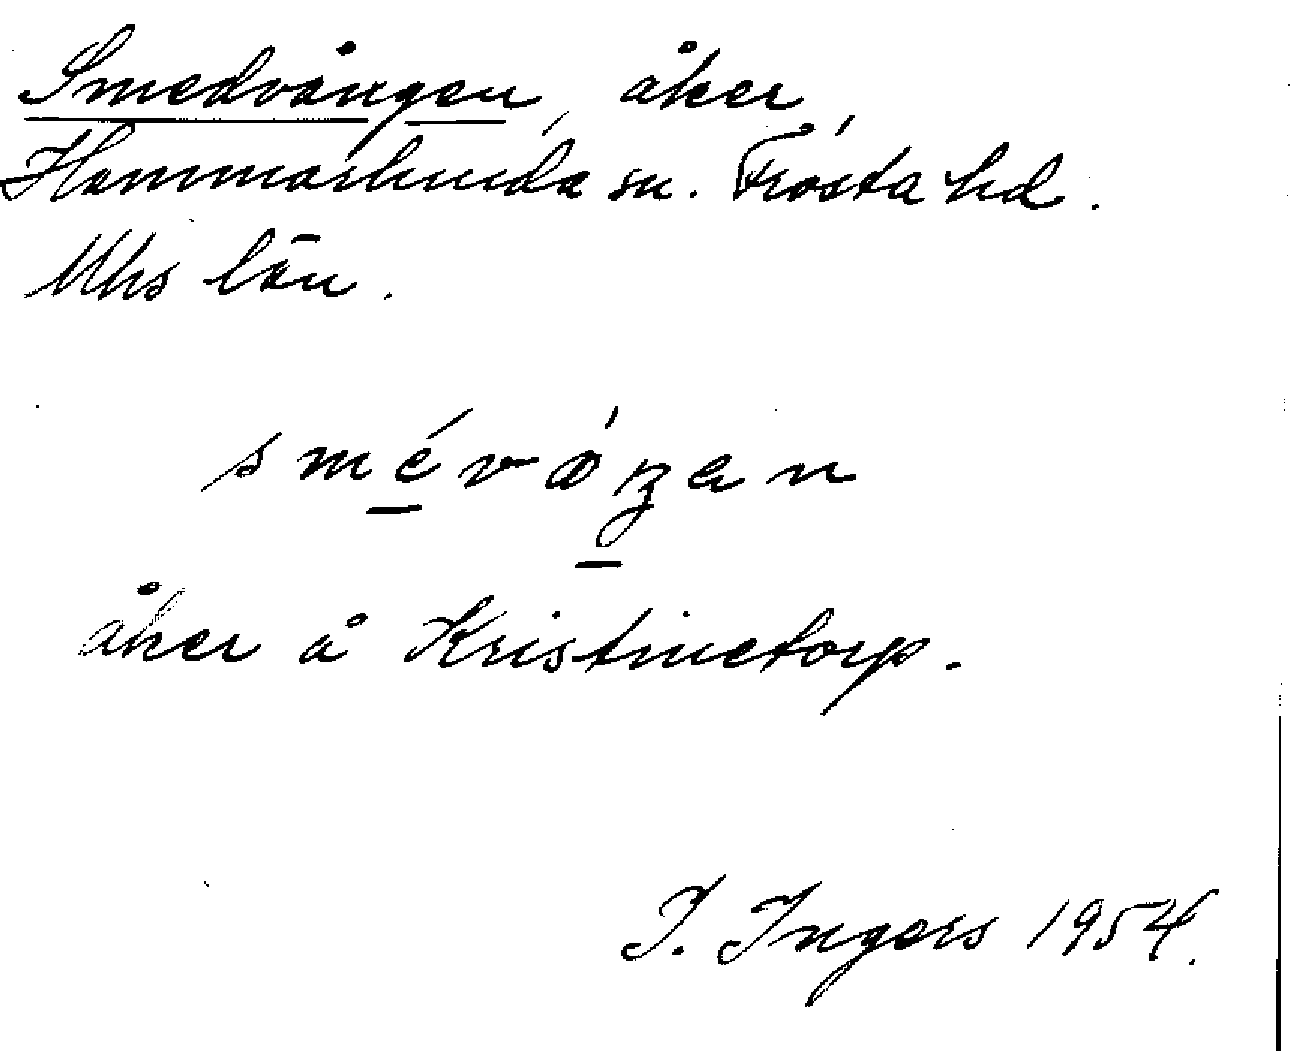 Smedvången, åker,
Hammarlunda sn. Frosta hd.
Mhs län.
åker å Kristinetorp.
I. Ingers 1954.